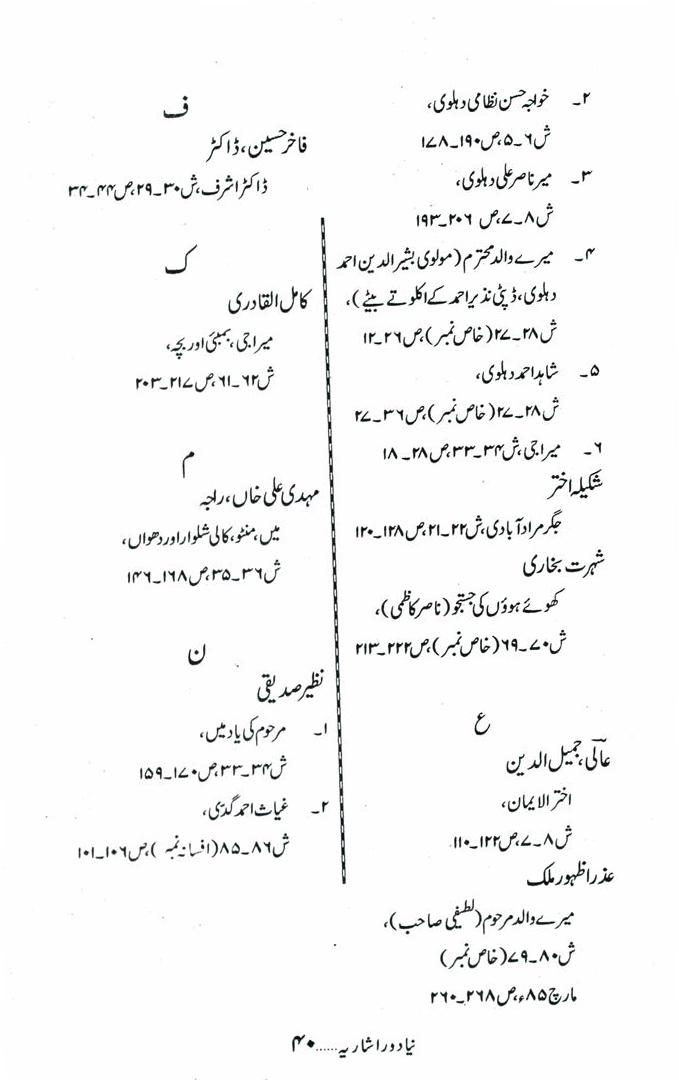 ۲۔ خواجہ حسن نظامی دہلوی،
ش۶۔۵، ص۱۹۰۔۱۷۸
۳۔ میر ناصر علی دہلوی،
ش۸۔۷، ص ۲۰۶۔۱۹۳
۴۔ میرے والد محترم (مولوی بشیر الدین احمد
دہلوی، ڈپٹی نذیر احمد کے اکلوتے بیٹے)،
ش۲۸۔۲۷ (خاص نمبر)، ص۲۶۔۱۲
۵۔ شاہد احمد دہلوی،
ش۲۸۔۲۷ (خاص نمبر)، ص۳۶۔۲۷
۶۔ میراجی، ش۳۴۔۳۳، ص۲۸۔۱۸
شکیلہ اختر
جگر مراد آبادی، ش۲۲۔۲۱، ص۱۲۸۔۱۲۰
شہرت بخاری
کھوئے ہوؤں کی جستجو (ناصر کاظمی)،
ش۷۰۔۶۹ (خاص نمبر)، ص۲۲۲۔۲۱۳
ع
عالی، جمیل الدین
اختر الایمان،
ش۸۔۷، ص۱۲۲۔۱۱۰
عذرا ظہور ملک
میرے والد مرحوم (لطیفی صاحب)،
ش۸۰۔۷۹ (خاص نمبر)
مارچ ۸۵ء، ص۲۶۸۔۲۶۰
ف
فاخر حسین، ڈاکٹر
ڈاکٹر اشرف، ش۳۰۔۲۹، ص۴۴۔۳۴
ک
کامل القادری
میراجی، بمبئی اور بچہ،
ش۶۲۔۶۱، ص۲۱۷۔۲۰۳
م
مہدی علی خاں، راجہ
میں، منٹو، کالی شلوار اور دھواں،
ش۳۶۔۳۵، ص۱۶۸۔۱۴۶
ن
نظیر صدیقی
۱۔ مرحوم کی یاد میں،
ش۳۴۔۳۳، ص۱۷۰۔۱۵۹
۲۔ غیاث احمد گدی،
ش۸۶۔۸۵ (افسانہ نمبر)، ص۱۰۶۔۱۰۱
نیا دور اشاریہ......۴۰